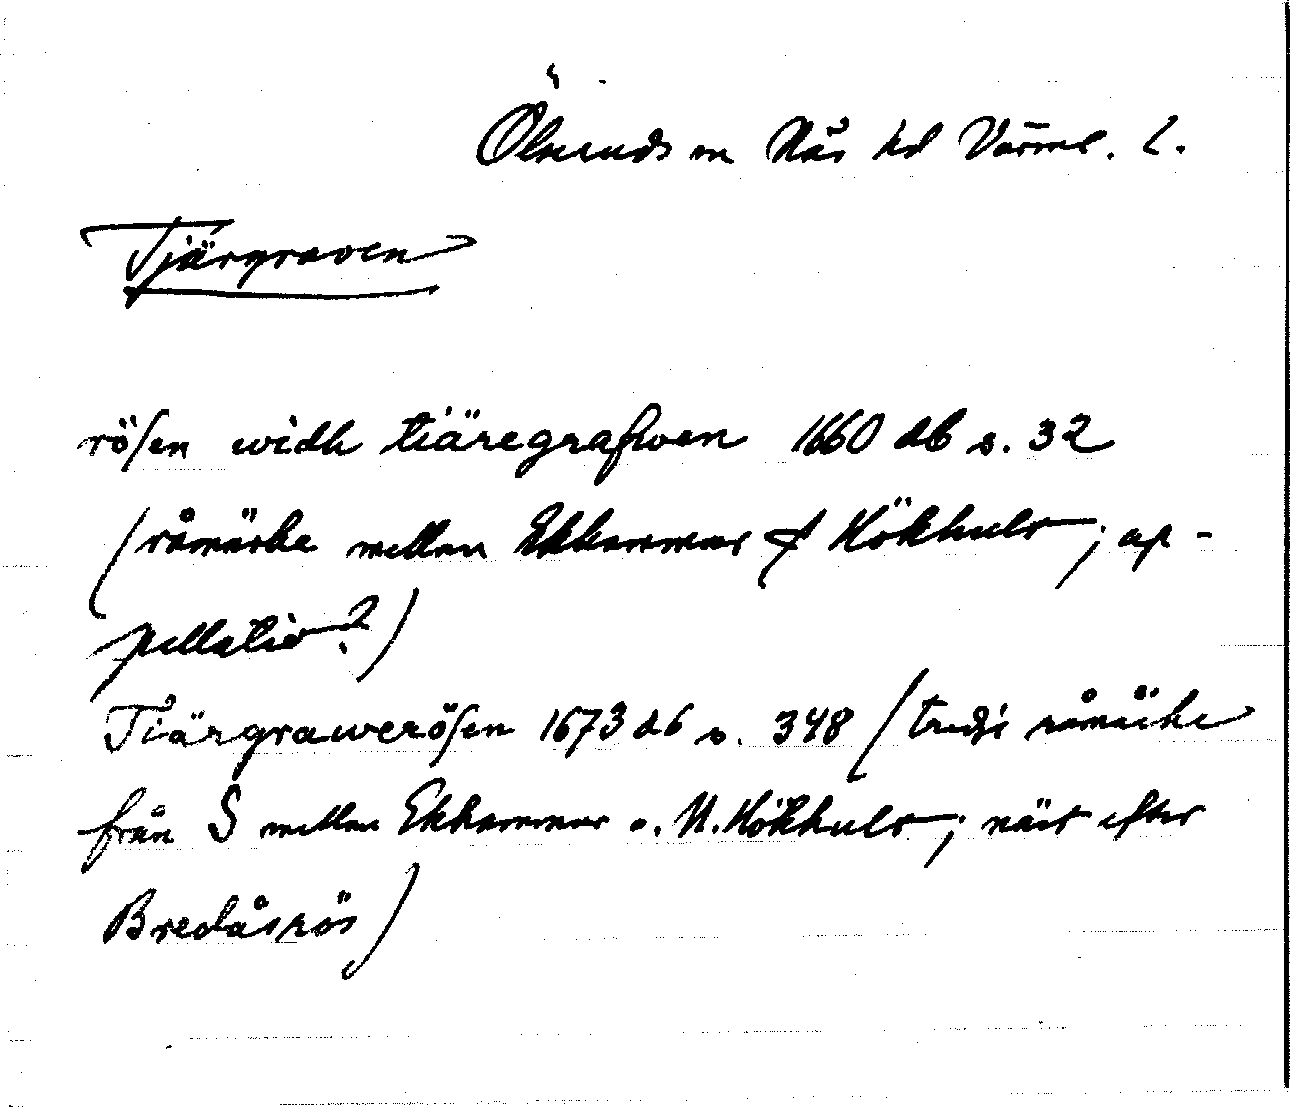 Ölseruds sn Näs hd Värml. l.
Tjärgraven
rösen widh tiäregrafwen 1660 db s. 32
(råmärke mellan Ekhammar & Hökhult; ap-
pellativ?)
Tiärgrawerösen 1673 db s. 348 (tredje råmärke
från S mellan Ekhammar o. N. Hökhult; näst efter
Bredåsrös)